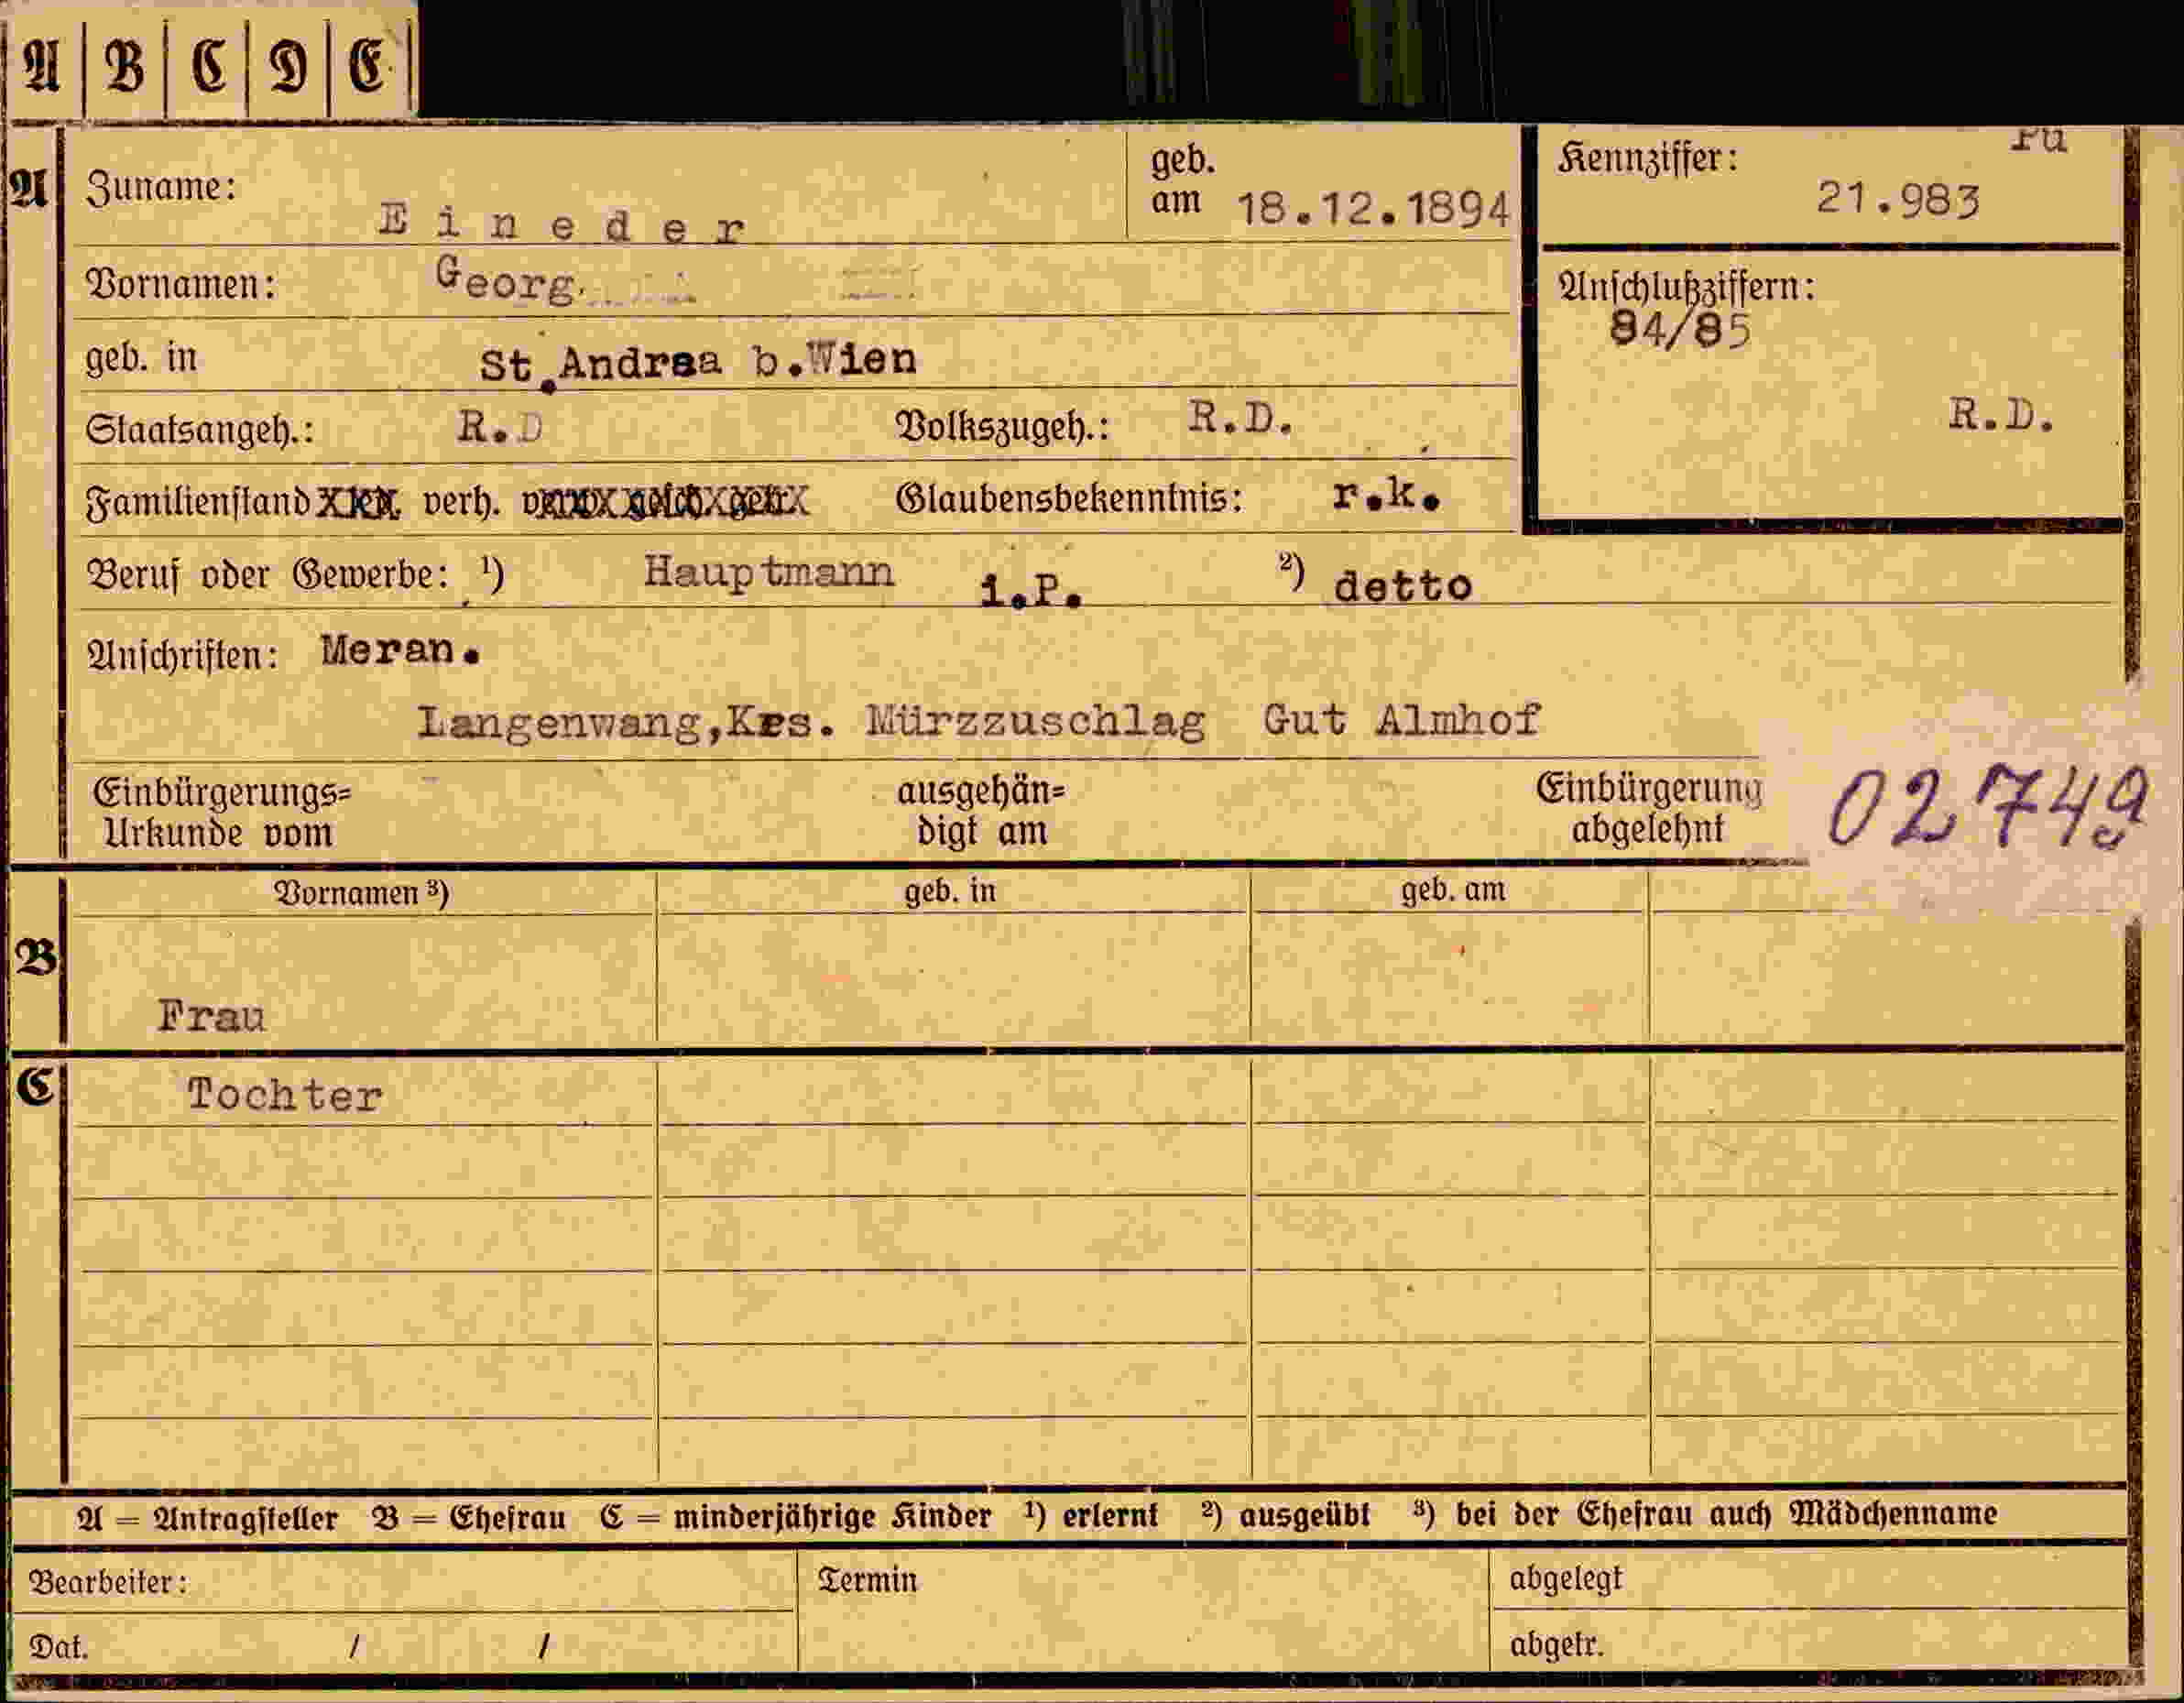 A B C D E
A Zuname: Eineder geb. am 18.12.1894
Kennziffer: 21.983
Vornamen: Georg
Anschlußziffern: 84/85
geb. in St.Andraa b.Wien
Staatsangeh.: R.D Volkszugeh.: R.D.
R.D.
Familienstand verh. Glaubensbekenntnis: r.k.
Beruf oder Gewerbe: 1) Hauptmann i.P. 2) detto
Anschriften: Meran.
Langenwang,Krs. Mürzzuschlag Gut Almhof
Einbürgerungs= Urkunde vom
ausgehän= digt am
Einbürgerung abgelehnt
02749
Vornamen 3) geb. in geb. am
B Frau
C Tochter
A = Antragsteller B = Ehefrau C = minderjährige Kinder 1) erlernt 2) ausgeübt 3) bei der Ehefrau auch Mädchenname
Bearbeiter: Termin abgelegt
Dat. / / abgetr.